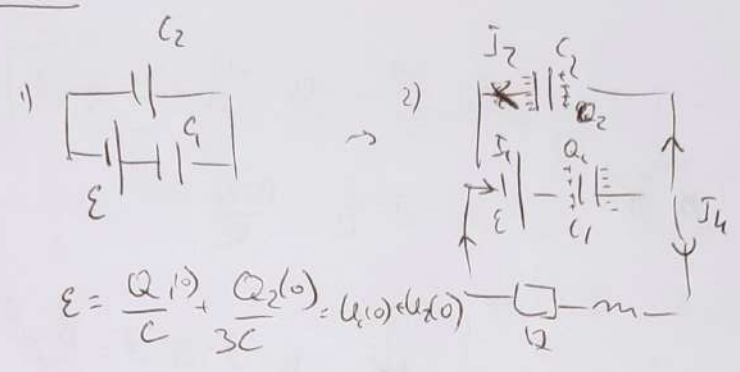 C₂
1)
C₁
ε
→
2)
J₂ C₂
Q₂
J₁ Q₁
ε C₁
J₄
ε = Q₁(0)/C + Q₂(0)/3C = U₁(0)+U₂(0)